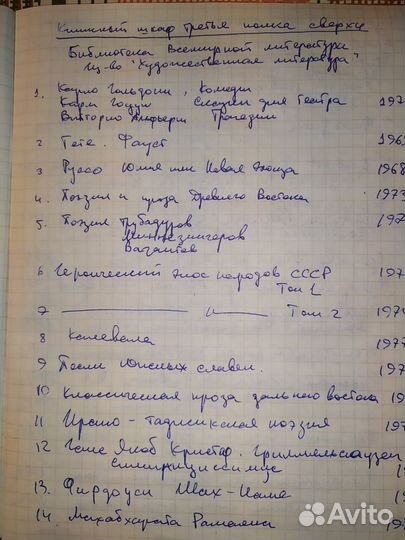 Книжный шкаф третья полка сверху
Библиотека Всемирной литературы
Из-во "Художественная литература"
1. Карло Гольдони, Комедии
Карло Гоцци Сказки для театра 197
Витторио Альфьери Трагедии
2 Гете. Фауст 196
3 Руссо Юлия или Новая Элоиза 1968
4. Поэзия и проза Древнего Востока 1973
5. Поэзия трубадуров 197
Миннезингеров
Вагантов
6 Героический эпос народов СССР 197
Том 1
7 — " — Том 2 197
8 Калевала 197
9 Песни южных славян. 197
10 Классическая проза дальнего востока 19
11 Ирано-таджикская поэзия 197
12 Ганс Якоб Кристоф. Гриммельсгаузен
Симплициссимус 19
13. Фирдоуси Шах-Наме 19
14. Махабхарата Рамаяна 19
Avito